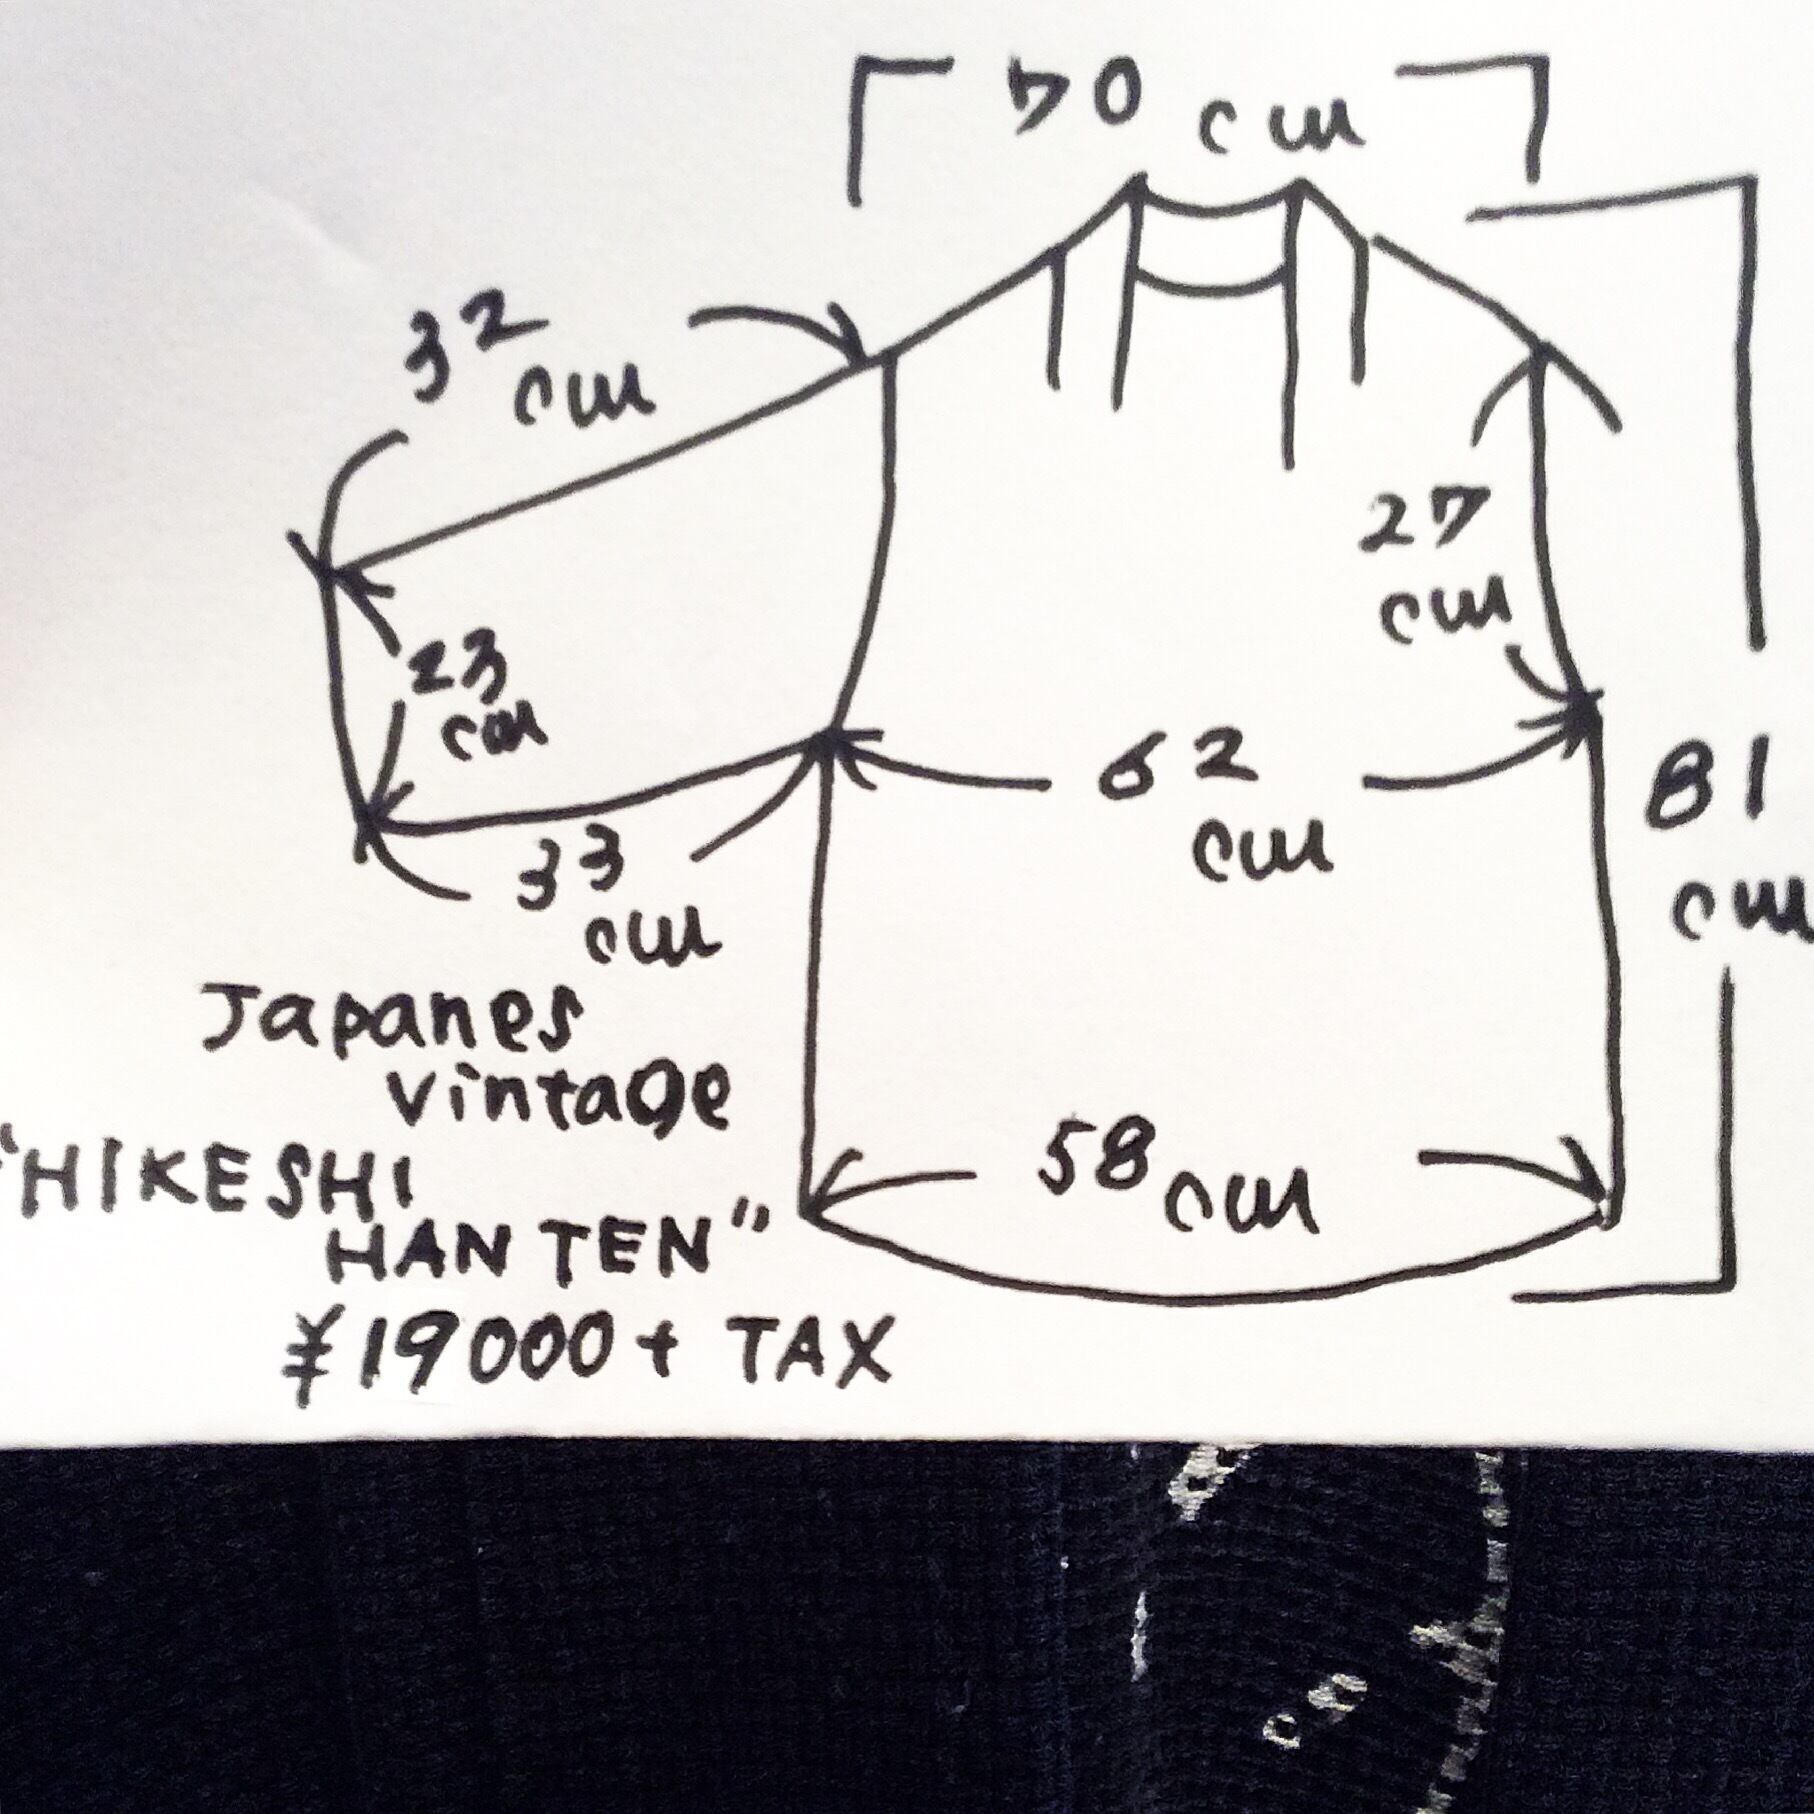 70 cm
32
cm
27
cm
23
cm
62
cm
81
cm
33
cm
Japanes
vintage
"HIKESHI
HANTEN"
58 cm
¥19000+ TAX